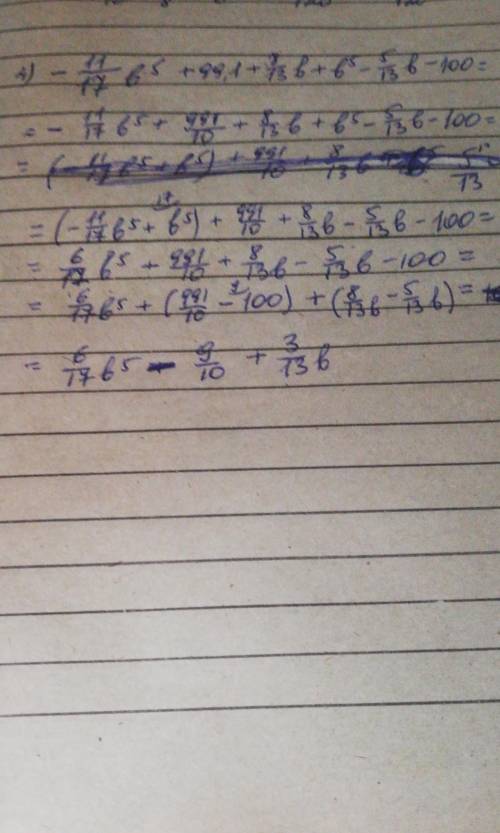 4) - 11/17 b⁵ + 99,1 + 8/13 b + b⁵ - 5/13 b - 100 =
= - 11/17 b⁵ + 991/10 + 8/13 b + b⁵ - 5/13 b - 100 =
= (- 11/17 b⁵ + b⁵) + 991/10 + 8/13 5/13
= (- 11/17 b⁵ + b⁵) + 991/10 + 8/13 b - 5/13 b - 100 =
= 6/17 b⁵ + 991/10 + 8/13 b - 5/13 b - 100 =
= 6/17 b⁵ + (991/10 - 100) + (8/13 b - 5/13 b) =
= 6/17 b⁵ - 9/10 + 3/13 b